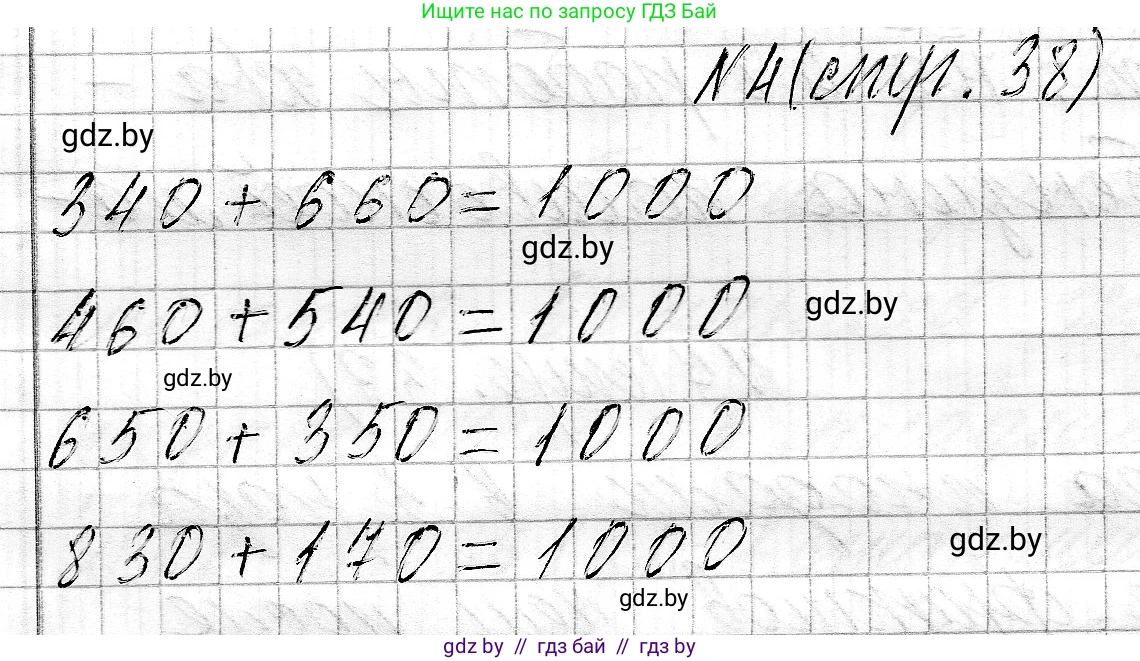 Ищите нас по запросу ГДЗ Бай
N 4 (стр. 38)
gdz.by
340 + 660 = 1000
gdz.by
460 + 540 = 1000
gdz.by
gdz.by
650 + 350 = 1000
830 + 170 = 1000
gdz.by
gdz.by
gdz by // гдз бай // гдз by